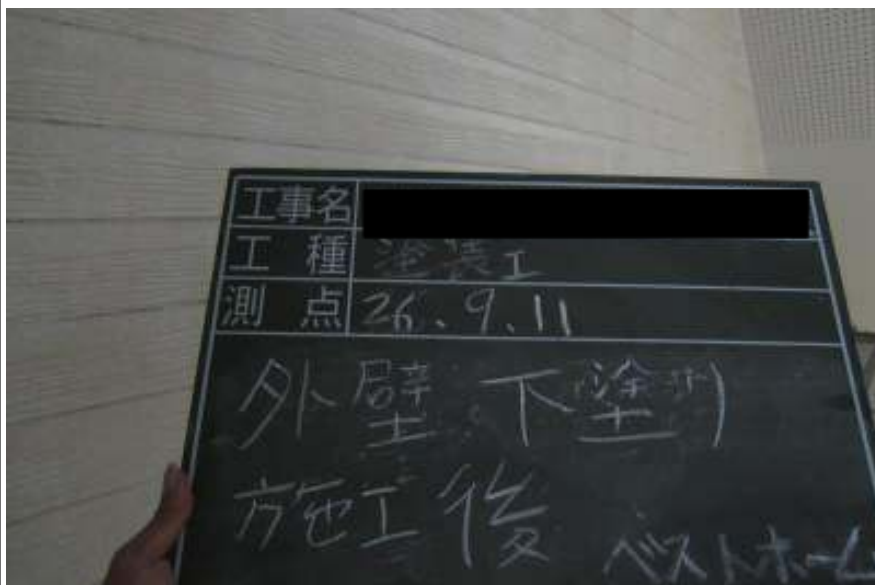 工事名
工種 塗装工
測点 26.9.11
外壁 下塗り
施工後
ベストホーム